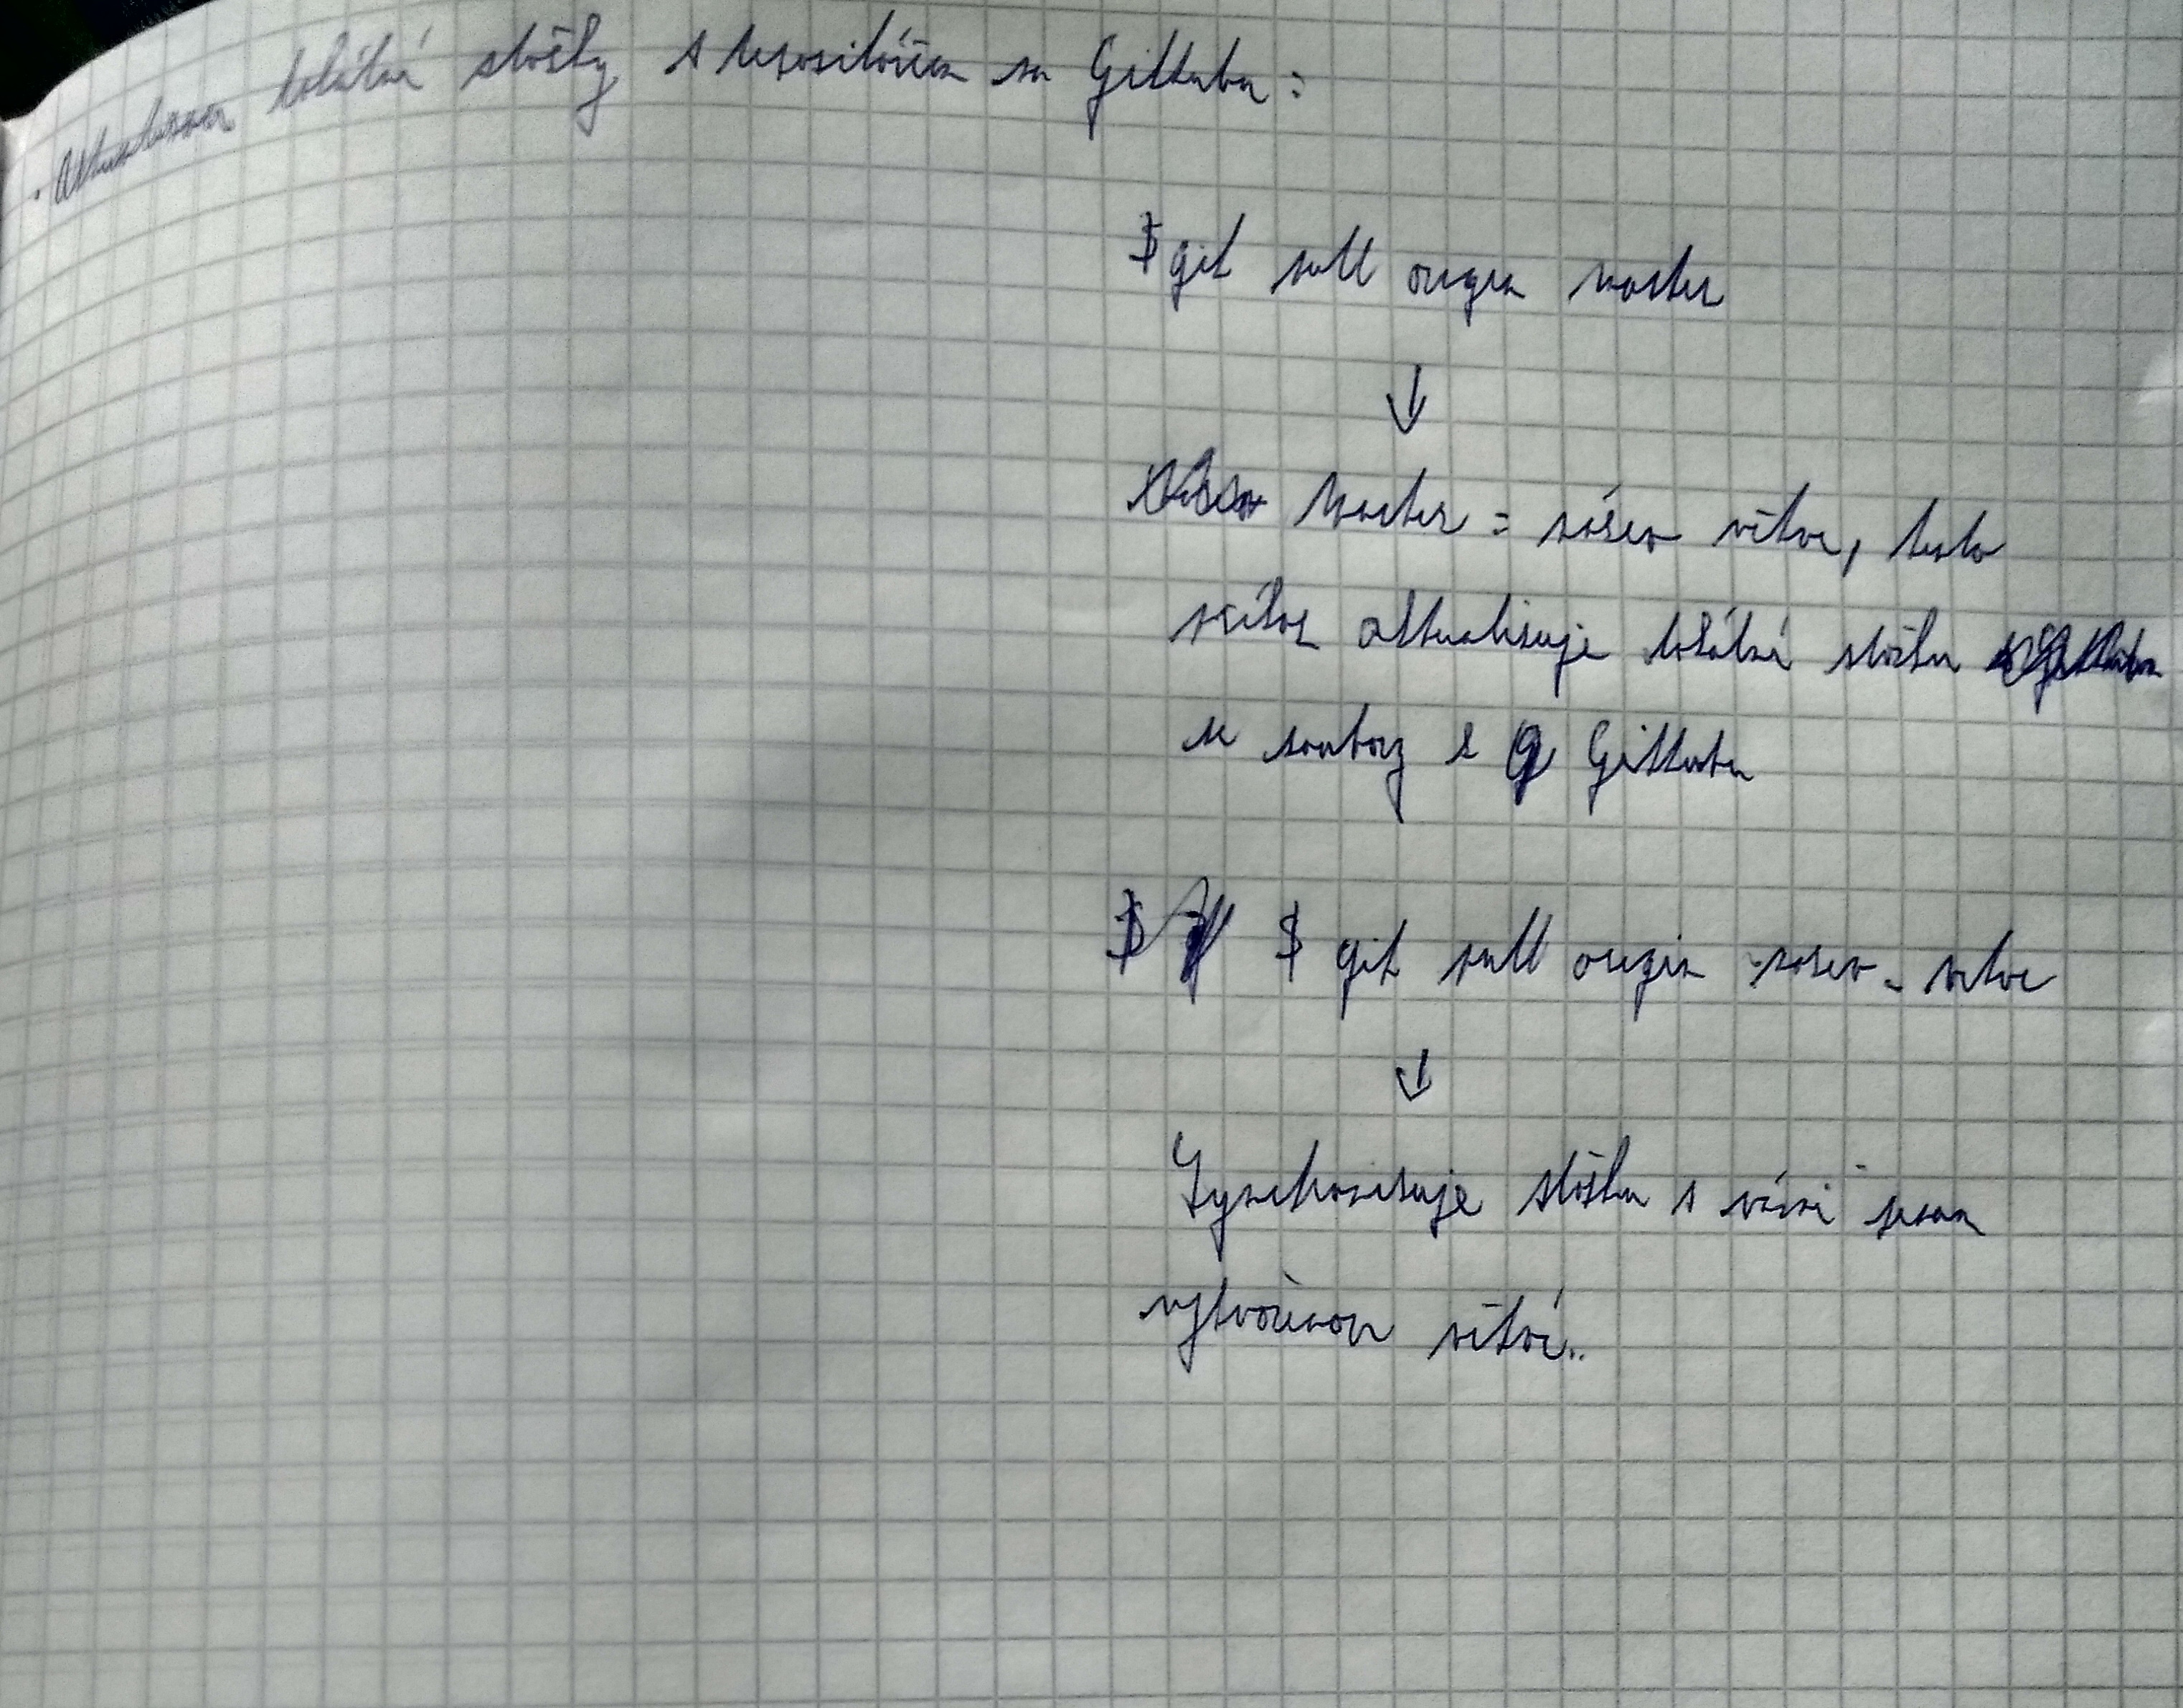 lokální složky s repositářem na Githubu:
$ git pull origin master
↓
Master = název větve, tento
příkaz aktualizuje lokální složku
se soubory z Githubu
$ git pull origin nazev_vetve
↓
Synchronizuje složku s námi
vytvořenou větví.